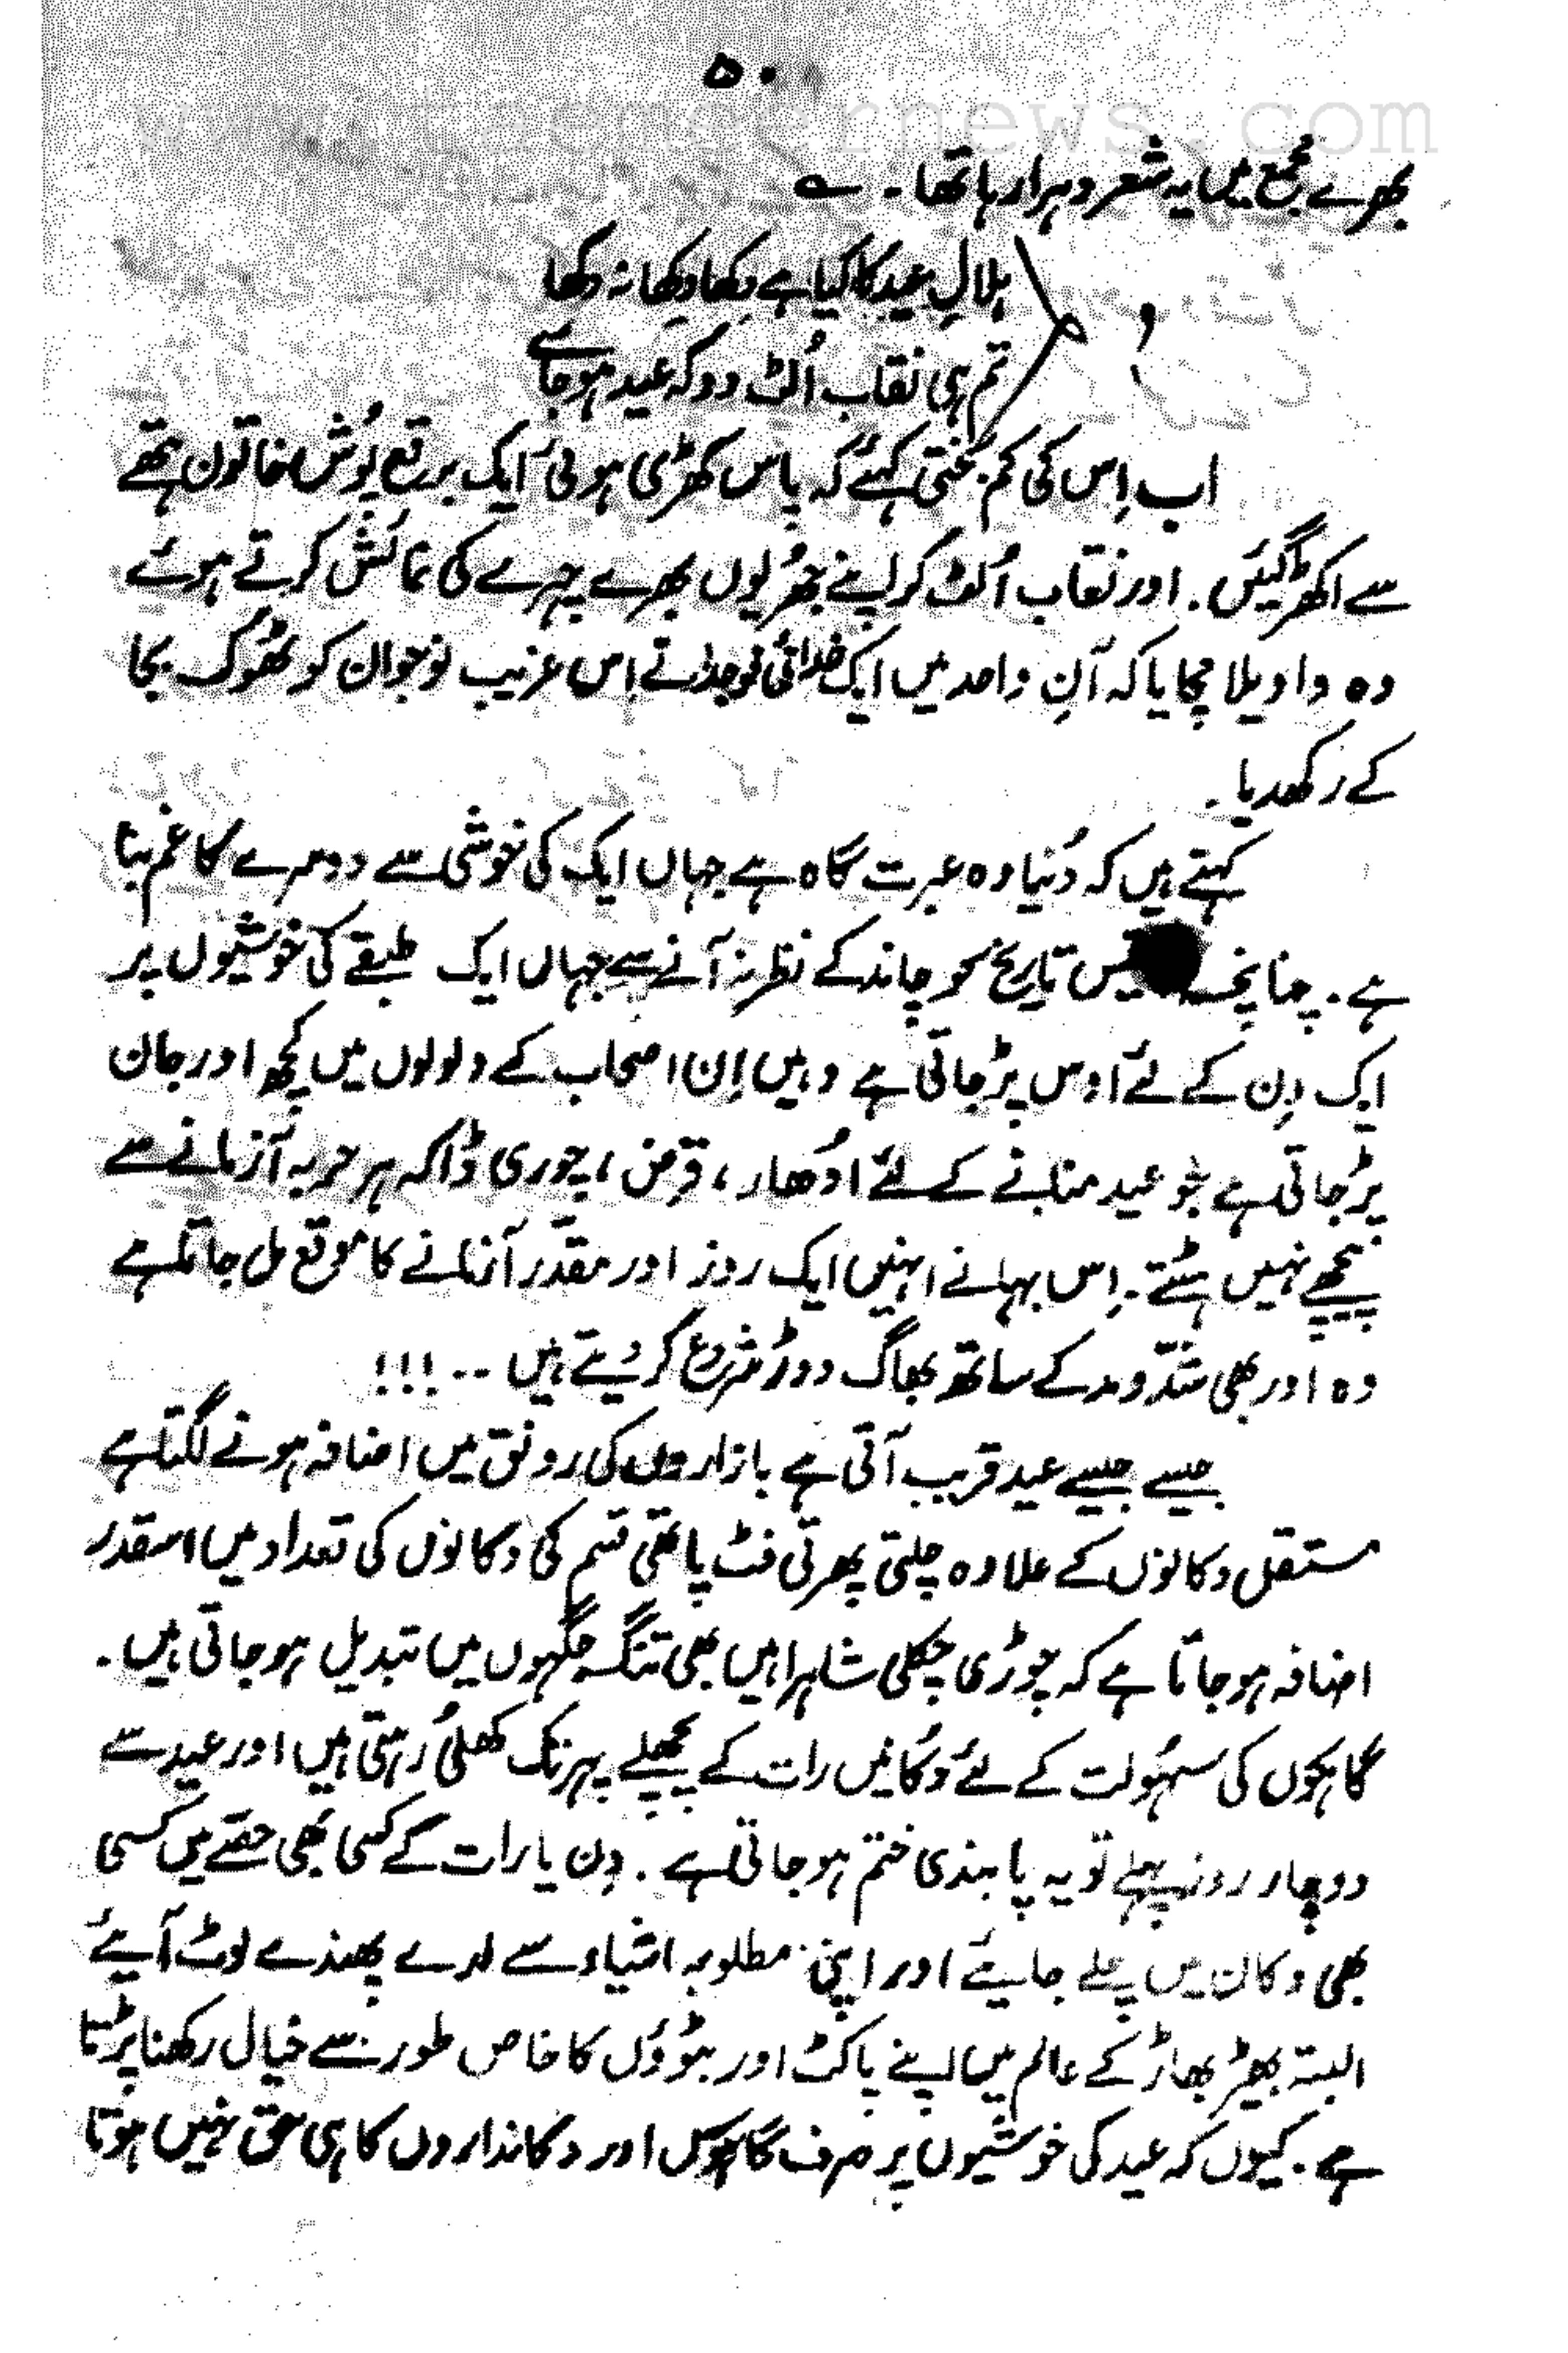 ۵۰
www.taemeernews.com
بھرے مجمع میں یہ شعر دہرا رہا تھا۔ ؎
ہلالِ عید کا کیا ہے دِکھا دِکھا نہ دکھا
تم ہی نقاب اُلٹ دو کہ عید ہو جائے
اب اِس کی کم بختی کہئے کہ پاس کھڑی ہوئی ایک برقع پوُش خاتون ہتھے
سے اکھڑ گیئں۔ اور نقاب اُلٹ کر اپنے جھُریوں بھرے چہرے کی نمائش کرتے ہوئے
وہ واویلا مچایا کہ آنِ واحد میں ایک خدائی فوجدار نے اِس غریب نوجوان کو ٹھُونک بجا
کے رکھدیا۔
کہتے ہیں کہ دُنیا وہ عبرت گاہ ہے جہاں ایک کی خوشی سے دوسرے کا غم بنتا
ہے۔ چنانچہ تاریخ کو چاند کے نظر نہ آنے سے جہاں ایک طبقے کی خوشیوں پر
ایک دِن کے لئے اوس پڑ جاتی ہے وہیں اِن اصحاب کے ولولوں میں کچھ اور جان
پڑ جاتی ہے جو عید منانے کے لئے اُدھار، قرض، چوری ڈاکہ ہر حربہ آزمانے سے
پیچھے نہیں ہٹتے۔ اِس بہانے انہیں ایک روز اور مقدّر آزمانے کا موقع مل جاتا ہے
وہ اور بھی شدّ و مد کے ساتھ بھاگ دوڑ شروع کر دیتے ہیں ۔۔!!!
جیسے جیسے عید قریب آتی ہے بازاروں کی رونق میں اضافہ ہونے لگتا ہے
مستقل دکانوں کے علاوہ چلتی پھرتی فٹ پاتھی قسم کی دکانوں کی تعداد میں اسقدر
اضافہ ہو جاتا ہے کہ چوڑی چکلی شاہراہیں بھی تنگ جگہوں میں تبدیل ہو جاتی ہیں۔
گاہکوں کی سہُولت کے لئے دُکانیں رات کے پچھلے پہر تک کھلی رہتی ہیں اور عید سے
دو چار روز پہلے تو یہ پابندی ختم ہو جاتی ہے۔ دِن یا رات کے کسی بھی حصّے میں کسی
بھی دکان میں چلے جایئے اور اپنی مطلوبہ اشیاء سے لدے پھندے لوٹ آیئے
البتہ بھیڑ بھاڑ کے عالم میں اپنے پاکٹ اور بٹوؤں کا خاص طور سے خیال رکھنا پڑتا
ہے۔ کیوں کہ عید کی خوشیوں پر صرف گاہکوں اور دکانداروں کا ہی حق نہیں ہوتا